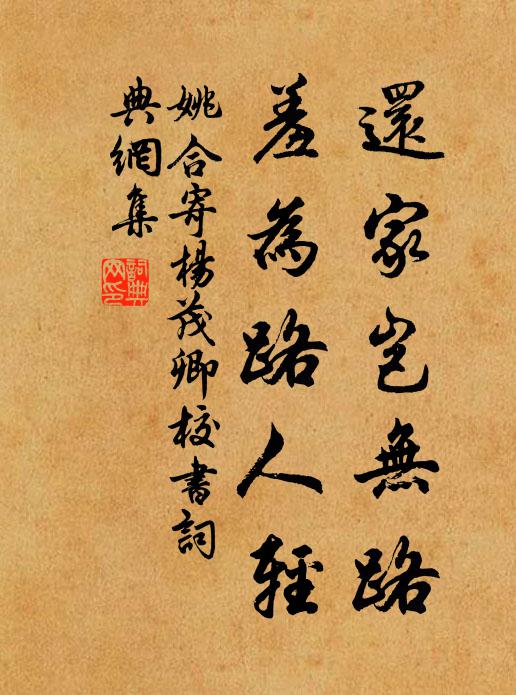 還家豈無路
羞為路人輕
姚合寄楊茂卿校書詞
典網集
詞典
网印